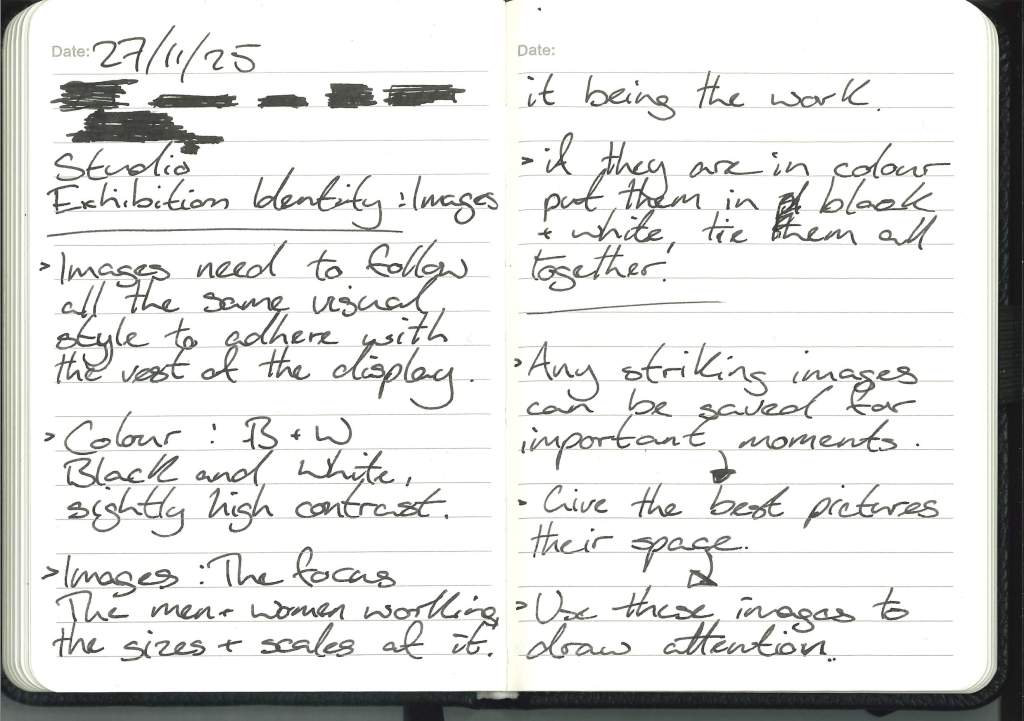 Date: 27/11/25
Studio
Exhibition Identity : Images
> Images need to follow
all the same visual
style to adhere with
the rest of the display.
> Colour : B + W
Black and white,
sightly high contrast.
> Images : The focus
The men + women working,
the sizes + scales of it.
Date:
it being the work.
> if they are in colour
put them in black
+ white, tie them all
together!
> Any striking images
can be saved for
important moments.
- Give the best pictures
their space.
> Use these images to
draw attention.